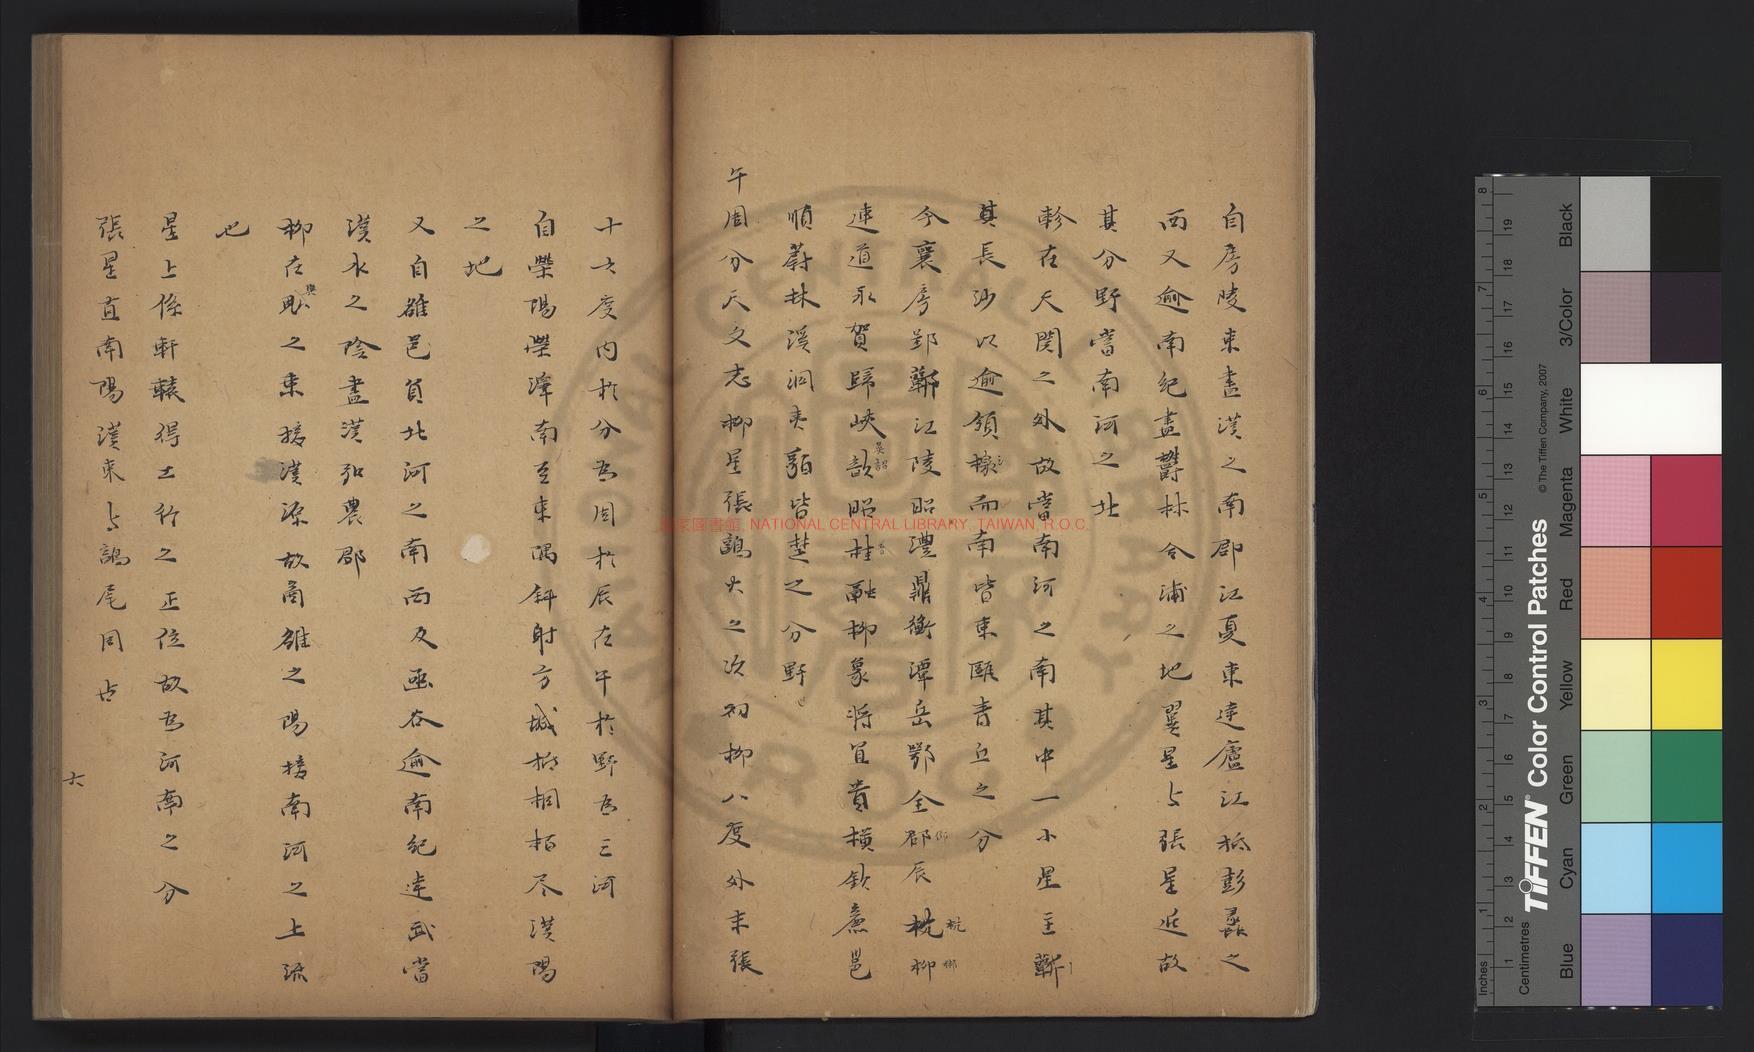 自房陵東盡漢之南郡江夏東達廬江極彭蠡之
西又逾南紀盡欝林合浦之地翼星与張星近故
其分野當南河之北
軫在天関之外故當南河之南其中一小星主
其長沙以逾領而南皆東甌青丘之分
今襄房郢蘄江陵昭澧鼎衡潭岳鄂全郡辰柳
連道永賀歸峽昭桂融柳象將宜貴橫欽廉邕
順蔚林溪洞夷皆楚之分野
午周分天文志柳星張鶉火之次初柳八度外末張
十六度内於分為周於辰在午於野為三河
自滎陽滎澤南至東隅斜射方城抵桐栢尽漢陽
之地
又自雒邑負北河之南西及函谷逾南紀達武當
漢水之陰盡漢弘農郡
柳在輿之東接漢源故商雒之陽接南河之上流
也
星上係軒轅得土行之正位故為河南之分
張星直南陽漢東与鶉尾同占
六
國家圖書館, NATIONAL CENTRAL LIBRARY, TAIWAN, R.O.C.
TIFFEN® Color Control Patches
© The Tiffen Company, 2007
Inches
Centimetres
Blue
Cyan
Green
Yellow
Red
Magenta
White
3/Color
Black